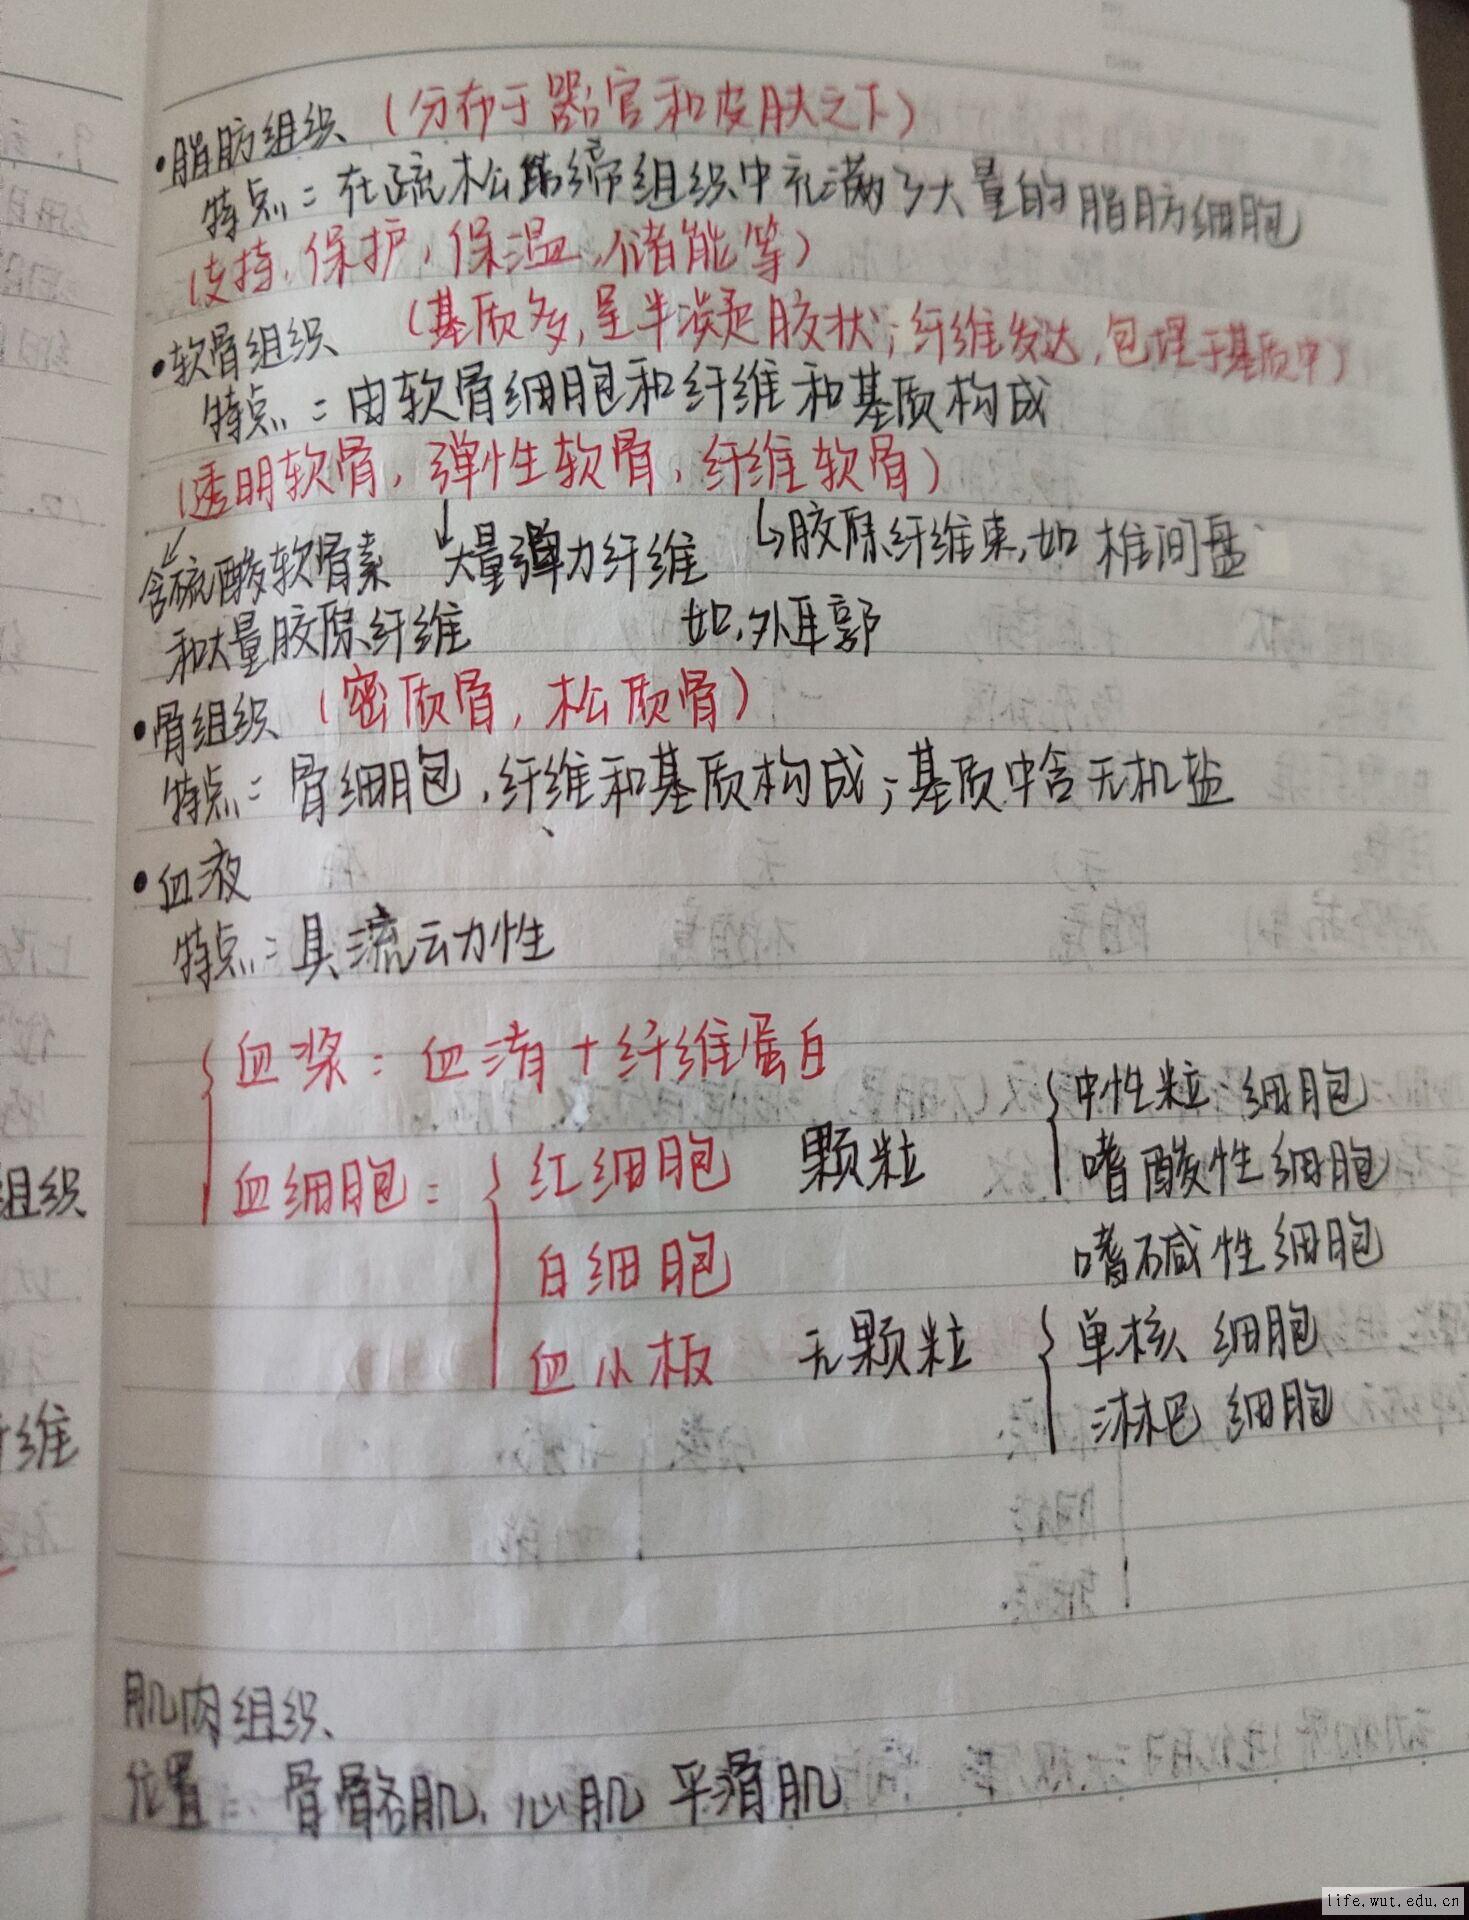 •脂肪组织 (分布于器官和皮肤之下)
特点：在疏松结缔组织中充满了大量的脂肪细胞
(支持, 保护, 保温, 储能等)
•软骨组织 (基质多, 呈半凝胶状; 纤维发达, 包埋于基质中)
特点：由软骨细胞和纤维和基质构成
(透明软骨, 弹性软骨, 纤维软骨)
含硫酸软骨素 大量弹力纤维 胶原纤维束, 如 椎间盘
和大量胶原纤维 如, 外耳郭
•骨组织 (密质骨, 松质骨)
特点：骨细胞, 纤维和基质构成; 基质中含无机盐
•血液
特点：具流动性
血浆：血清+纤维蛋白
中性粒细胞
血细胞：红细胞 颗粒 嗜酸性细胞
白细胞 嗜碱性细胞
血小板 无颗粒 单核细胞
淋巴细胞
肌肉组织
位置：骨骼肌, 心肌 平滑肌
组织
纤维
life.wut.edu.cn